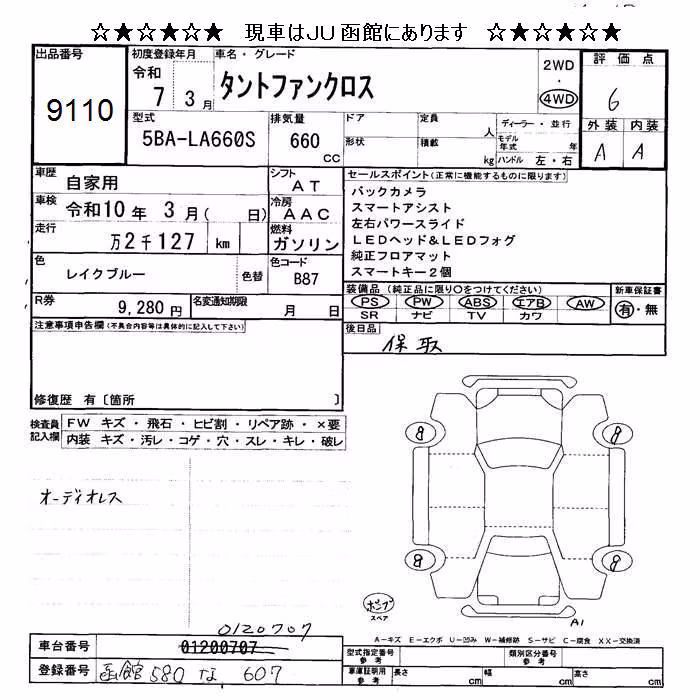 ☆★☆★☆★ 現車はJU函館にあります ☆★☆★☆★
出品番号 9110
初度登録年月 令和 7年 3月
車名・グレード タントファンクロス
2WD ・ 4WD
評価点 6
外装 A 内装 A
型式 5BA-LA660S
排気量 660 cc
ドア 定員 人
形状 積載 kg
ディーラー・並行
モデル年式 年
ハンドル 左・右
車歴 自家用
シフト AT
車検 令和10年 3月( 日)
冷房 AAC
走行 万2千127 km
燃料 ガソリン
色 レイクブルー 色替
色コード B87
R券 9,280円
名変通知期限 月 日
セールスポイント(正常に機能するものに限ります)
バックカメラ
スマートアシスト
左右パワースライド
LEDヘッド&LEDフォグ
純正フロアマット
スマートキー2個
装備品(純正品に限り○をつけてください)
PS PW ABS エアB AW
SR ナビ TV カワ
新車保証書 有・無
後日品 保 取
注意事項申告欄(不具合内容等は具体的に記入して下さい)
修復歴 有〔箇所 〕
検査員記入欄
FW キズ・飛石・ヒビ割・リペア跡・×要
内装 キズ・汚レ・コゲ・穴・スレ・キレ・破レ
オーディオレス
8 8
8 8
スペア
A1
A-キズ E-エクボ U-凹み W-補修跡 S-サビ C-腐食 XX-交換済
0120707
車台番号 01200707
登録番号 函館 580 な 607
型式指定番号 参考
類別区分番号 参考
車庫証明用 参考 長さ cm 幅 cm 高さ cm